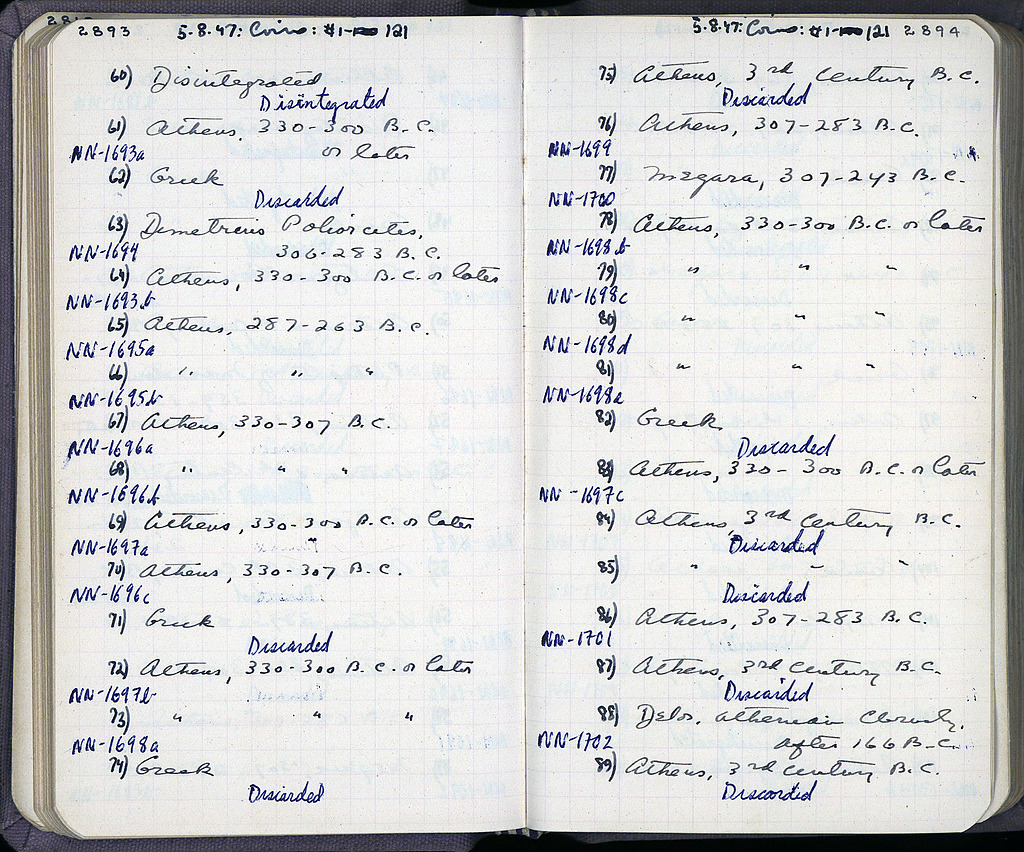 2893
5.8.47: Coins: #1- 121
60) Disintegrated
Disintegrated
61) Athens, 330-300 B.C.
or later
NN-1693a
62) Greek
Discarded
63) Demetrius Poliorcetes,
306-283 B.C.
NN-1694
64) Athens, 330-300 B.C. or later
NN-1693b
65) Athens, 287-263 B.C.
NN-1695a
66) " " "
NN-1695b
67) Athens, 330-307 B.C.
NN-1696a
68) " " "
NN-1696b
69) Athens, 330-300 B.C. or later
NN-1697a
70) Athens, 330-307 B.C.
NN-1696c
71) Greek
Discarded
72) Athens, 330-300 B.C. or later
NN-1697b
73) " " "
NN-1698a
74) Greek
Discarded
5.8.47: Coins: #1- 121 2894
75) Athens, 3rd century B.C.
Discarded
76) Athens, 307-283 B.C.
NN-1699
77) Megara, 307-243 B.C.
NN-1700
78) Athens, 330-300 B.C. or later
NN-1698b
79) " " "
NN-1698c
80) " " "
NN-1698d
81) " " "
NN-1698e
82) Greek
Discarded
83) Athens, 330-300 B.C. or later
NN-1697c
84) Athens, 3rd century B.C.
Discarded
85) " " "
Discarded
86) Athens, 307-283 B.C.
NN-1701
87) Athens, 3rd century B.C.
Discarded
88) Delos, Athenian Cleruchy,
after 166 B.C.
NN-1702
89) Athens, 3rd century B.C.
Discarded